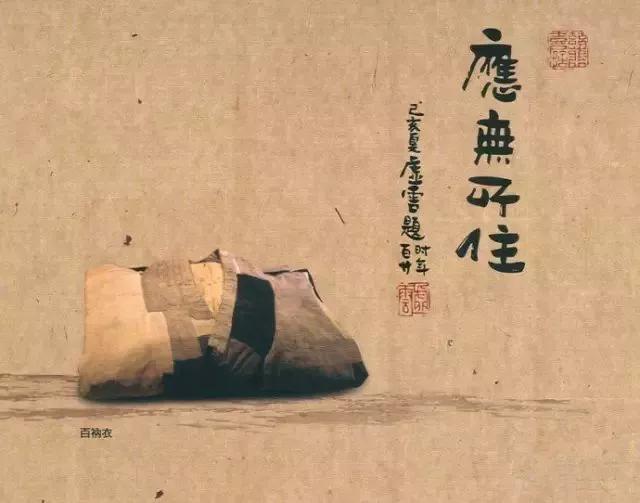 應無所住
己亥夏虚雲題
时年
百廿
百衲衣